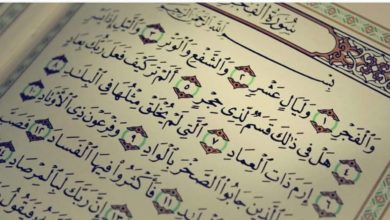 سُورَةُ الفَجْرِ
بِسْمِ اللَّهِ الرَّحْمَٰنِ الرَّحِيمِ
وَالْفَجْرِ ١ وَلَيَالٍ عَشْرٍ ٢ وَالشَّفْعِ وَالْوَتْرِ ٣ وَاللَّيْلِ إِذَا يَسْرِ
٤ هَلْ فِي ذَٰلِكَ قَسَمٌ لِّذِي حِجْرٍ ٥ أَلَمْ تَرَ كَيْفَ فَعَلَ رَبُّكَ بِعَادٍ
٦ إِرَمَ ذَاتِ الْعِمَادِ ٧ الَّتِي لَمْ يُخْلَقْ مِثْلُهَا فِي الْبِلَادِ ٨
الَّذِينَ جَابُوا الصَّخْرَ بِالْوَادِ ٩ وَفِرْعَوْنَ ذِي الْأَوْتَادِ ١٠
١١ فَأَكْثَرُوا فِيهَا الْفَسَادَ ١٢ فَصَبَّ
١٣ إِنَّ رَبَّكَ لَبِالْمِرْصَادِ
فَيَقُولُ